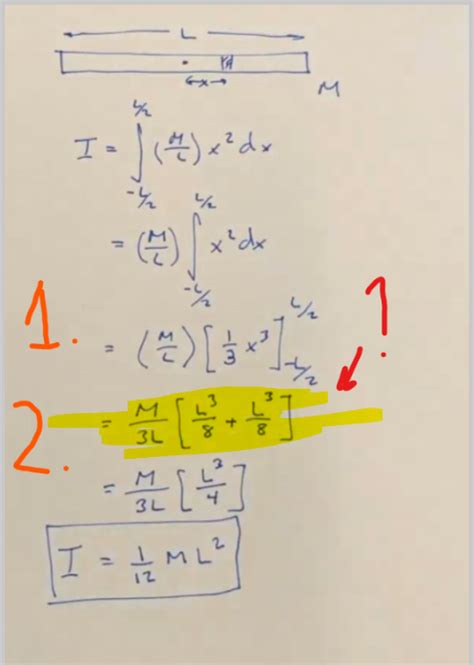 L
M
I = ∫_{-L/2}^{L/2} (M/L) x² dx
= (M/L) ∫_{-L/2}^{L/2} x² dx
1. = (M/L) [1/3 x³]_{-L/2}^{L/2} ?
2. = M/3L [L³/8 + L³/8]
= M/3L [L³/4]
I = 1/12 ML²